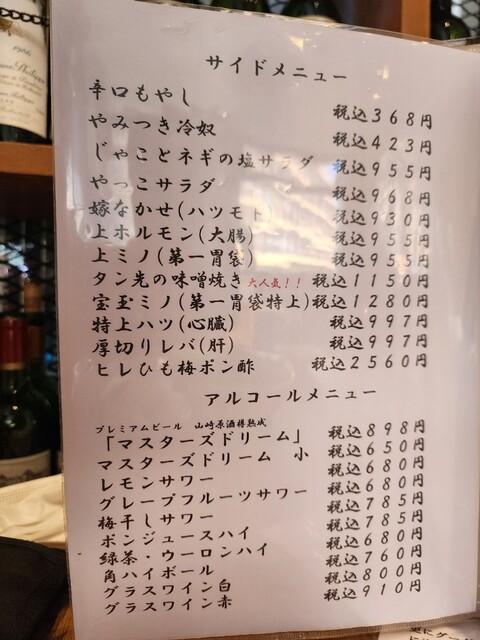 サイドメニュー
辛口もやし 税込368円
やみつき冷奴 税込423円
じゃことネギの塩サラダ 税込955円
やっこサラダ 税込968円
嫁なかせ(ハツモト) 税込930円
上ホルモン(大腸) 税込955円
上ミノ(第一胃袋) 税込955円
タン先の味噌焼き 大人気!! 税込1150円
宝玉ミノ(第一胃袋特上) 税込1280円
特上ハツ(心臓) 税込997円
厚切りレバ(肝) 税込997円
ヒレひも梅ポン酢 税込2560円
アルコールメニュー
プレミアムビール 山崎原酒樽熟成
「マスターズドリーム」 税込898円
マスターズドリーム 小 税込650円
レモンサワー 税込680円
グレープフルーツサワー 税込680円
梅干しサワー 税込785円
ポンジュースハイ 税込785円
緑茶・ウーロンハイ 税込680円
角ハイボール 税込760円
グラスワイン白 税込800円
グラスワイン赤 税込910円